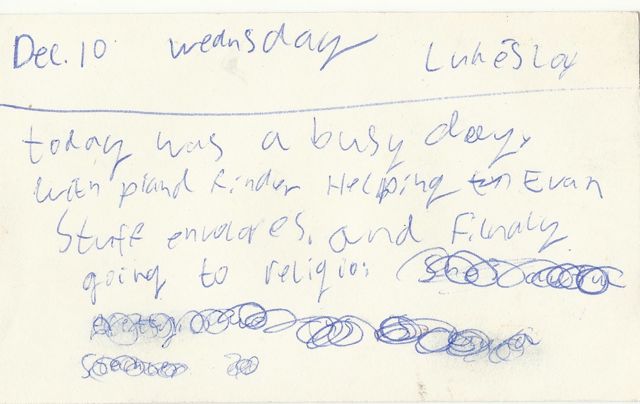 Dec. 10 wednsday Luke Slay
today was a busy day.
with piano kinder Helping Evan
Stuff envolopes. and Finaly
going to religio: